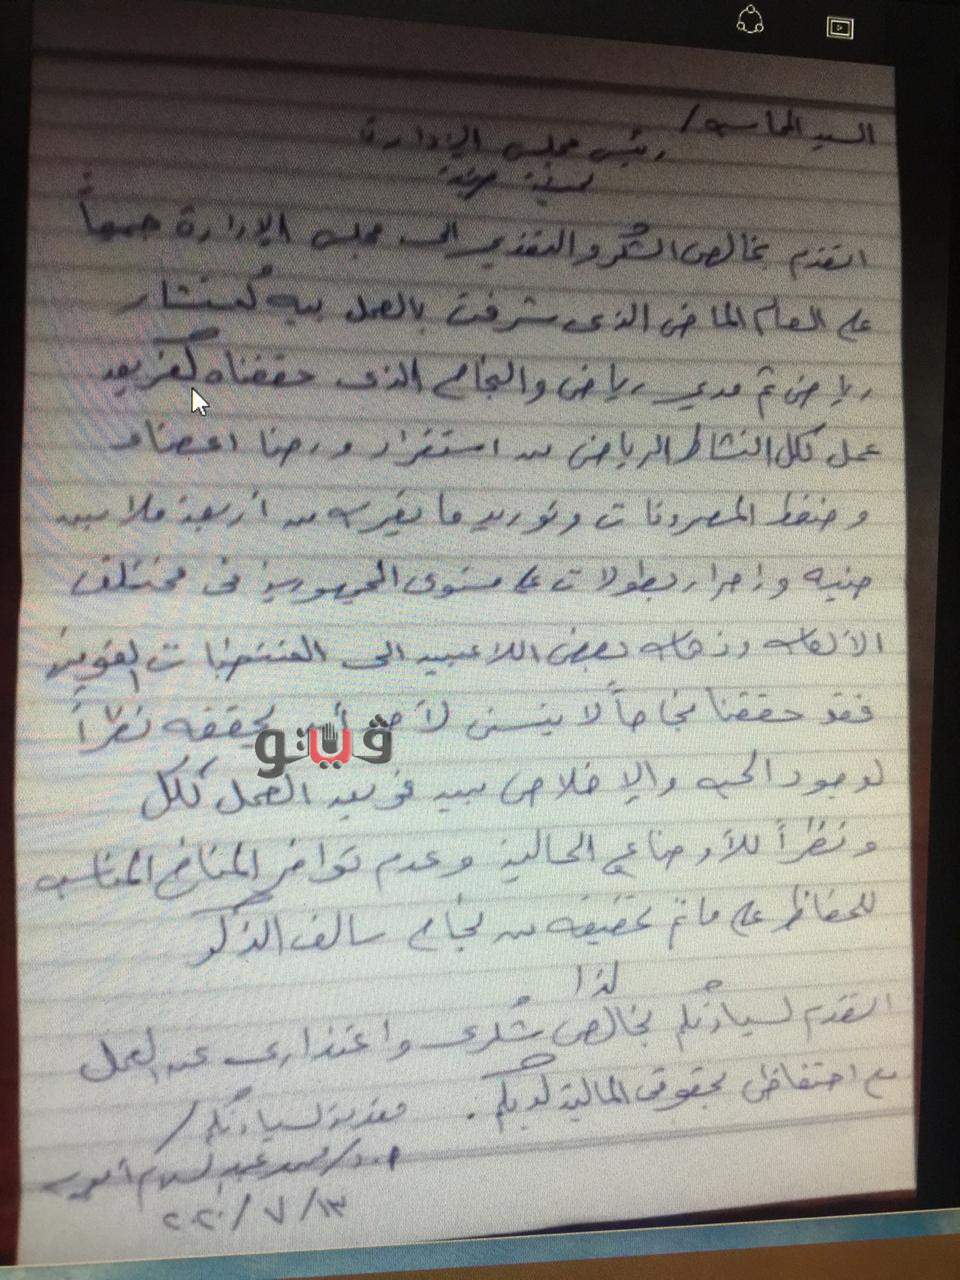 السيد المحاسب /
رئيس مجلس الإدارة
تحية طيبة
اتقدم بخالص الشكر والتقدير الى مجلس الإدارة جميعاً
على العام الماضى الذى شرفت بالعمل فيه كمستشار
رياضى ثم مدير رياضى والنجاح الذى حققناه كفريق
عمل لكل النشاط الرياضى من استقرار ورضا اعضاء
وضغط المصروفات وتوريد ما يقرب من أربعة ملايين
جنيه وإحراز بطولات على مستوى الجمهورية فى مختلف
الألعاب وذهاب بعض اللاعبين الى المنتخبات القومية
فقد حققنا نجاحاً لا ينسى لأ يحققه نظراً
ڤيتو
لوجود الحب والإخلاص بين فريق العمل ككل
ونظراً للأوضاع الحالية وعدم توافر المناخ المناسب
للحفاظ على ماتم تحقيقه من نجاح سالف الذكر
لذا
اتقدم لسيادتكم بخالص شكرى واعتذارى عن العمل
مع احتفاظى بحقوقى المالية لديكم .
مقدمة لسيادتكم /
محمد عبد السلام
١٣ / ٧ / ٢٠٢٠